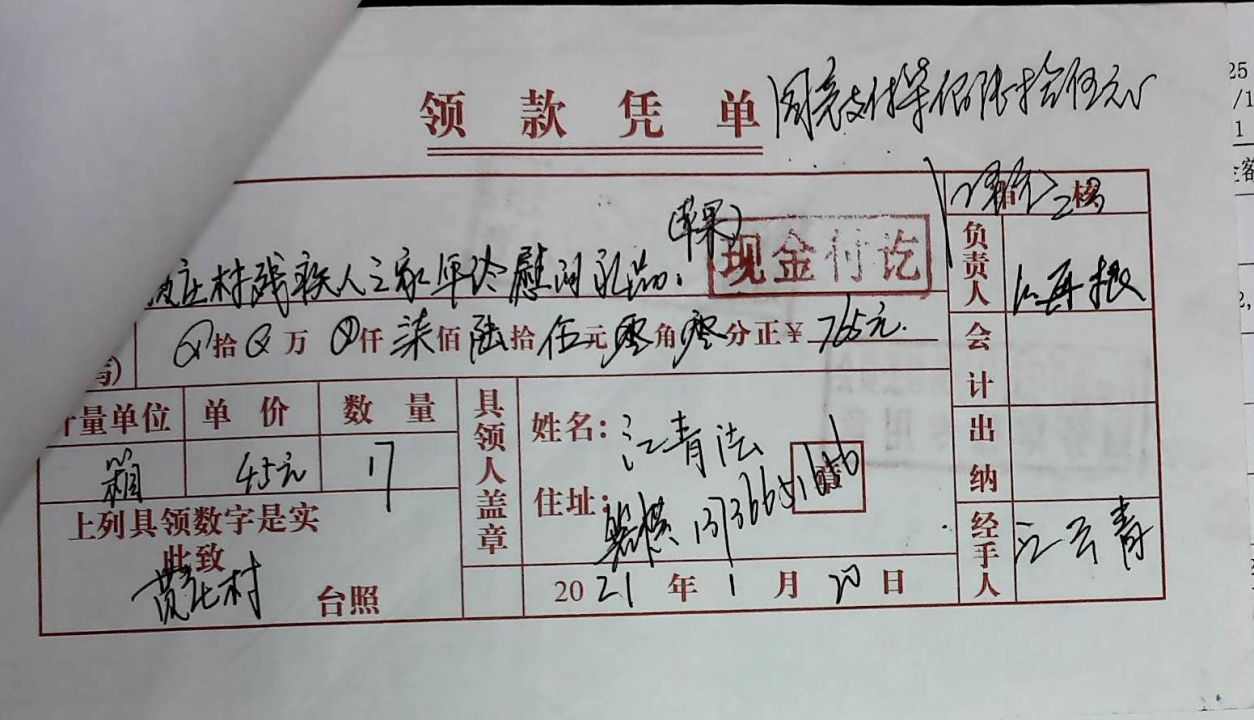 领款凭单 同意支付柒佰陆拾伍元
稽核
(苹果)
庄村残疾人之家年终慰问礼品.
现金付讫
拾 万 仟柒佰陆拾伍元零角零分正￥765元.
写)
计量单位 单价 数量
箱 45元 17
上列具领数字是实
此致
黄庄村 台照
具领人盖章
姓名: 江青法
住址: 13736651616
2021年1月20日
负责人
会计
出纳
经手人 江云青
25
/1
1